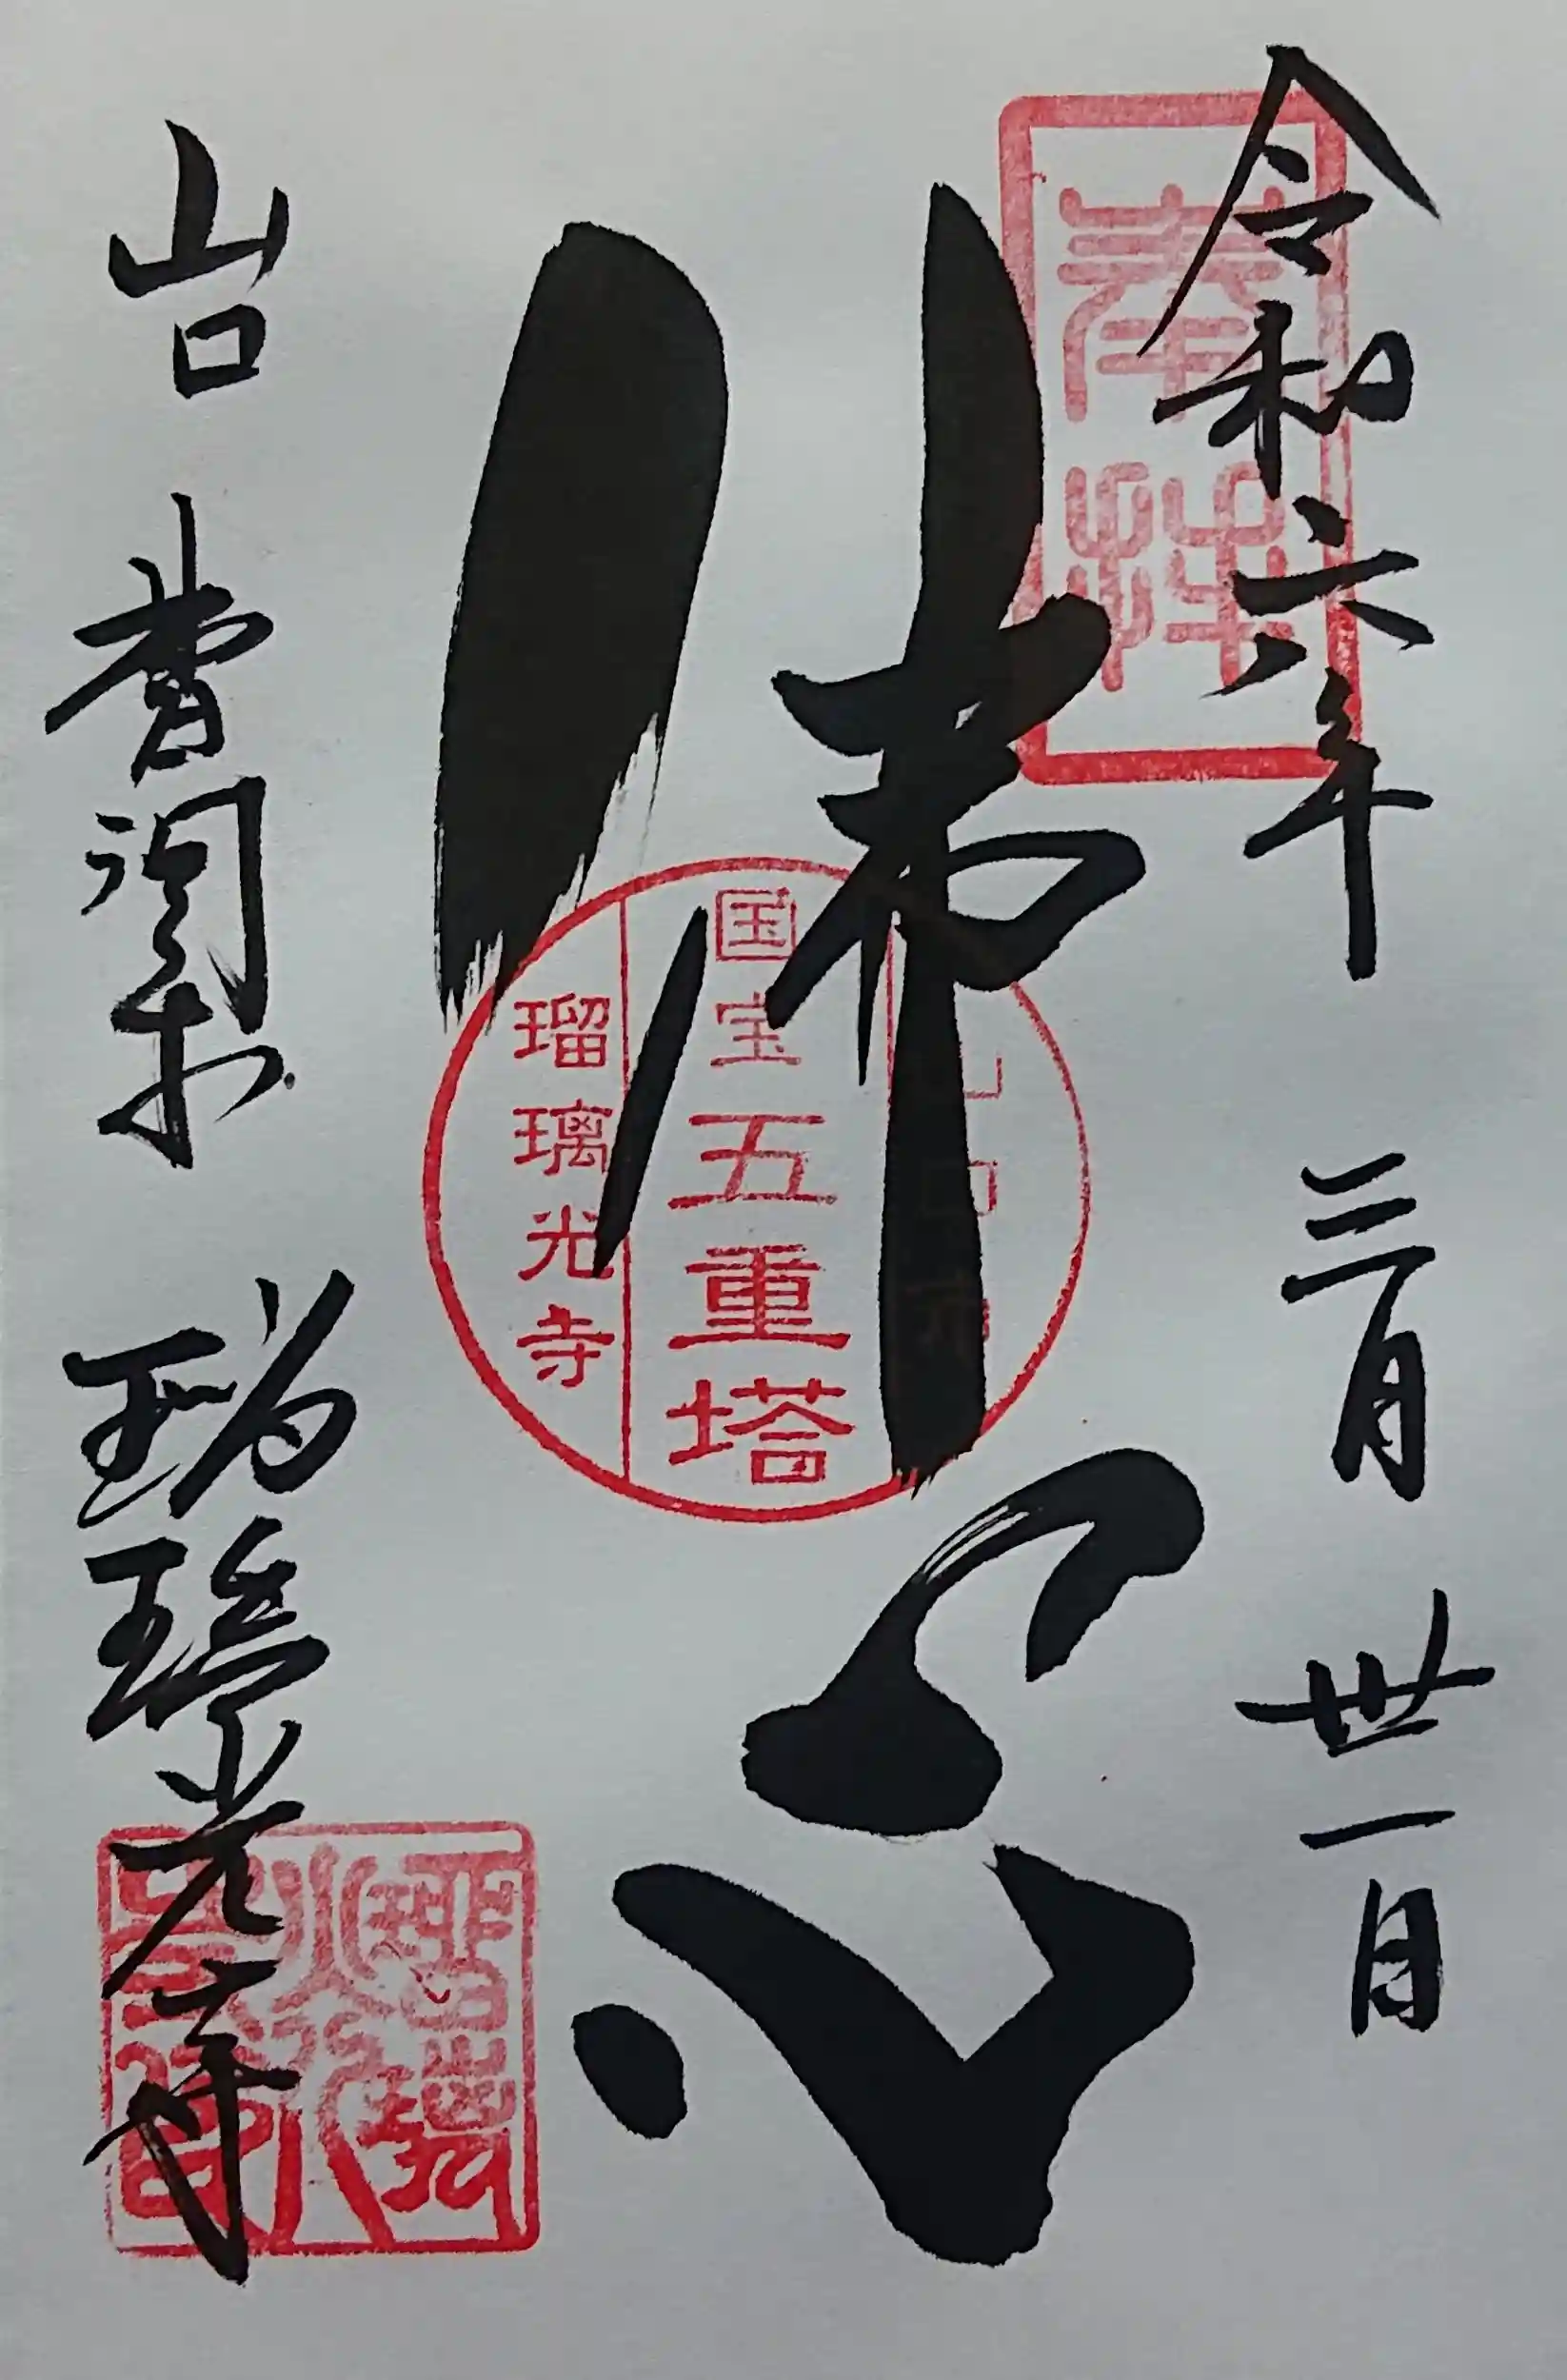 奉拝
令和六年 三月 丗一日
佛心
山口市
国宝五重塔
瑠璃光寺
山口 曹洞宗 瑠璃光寺